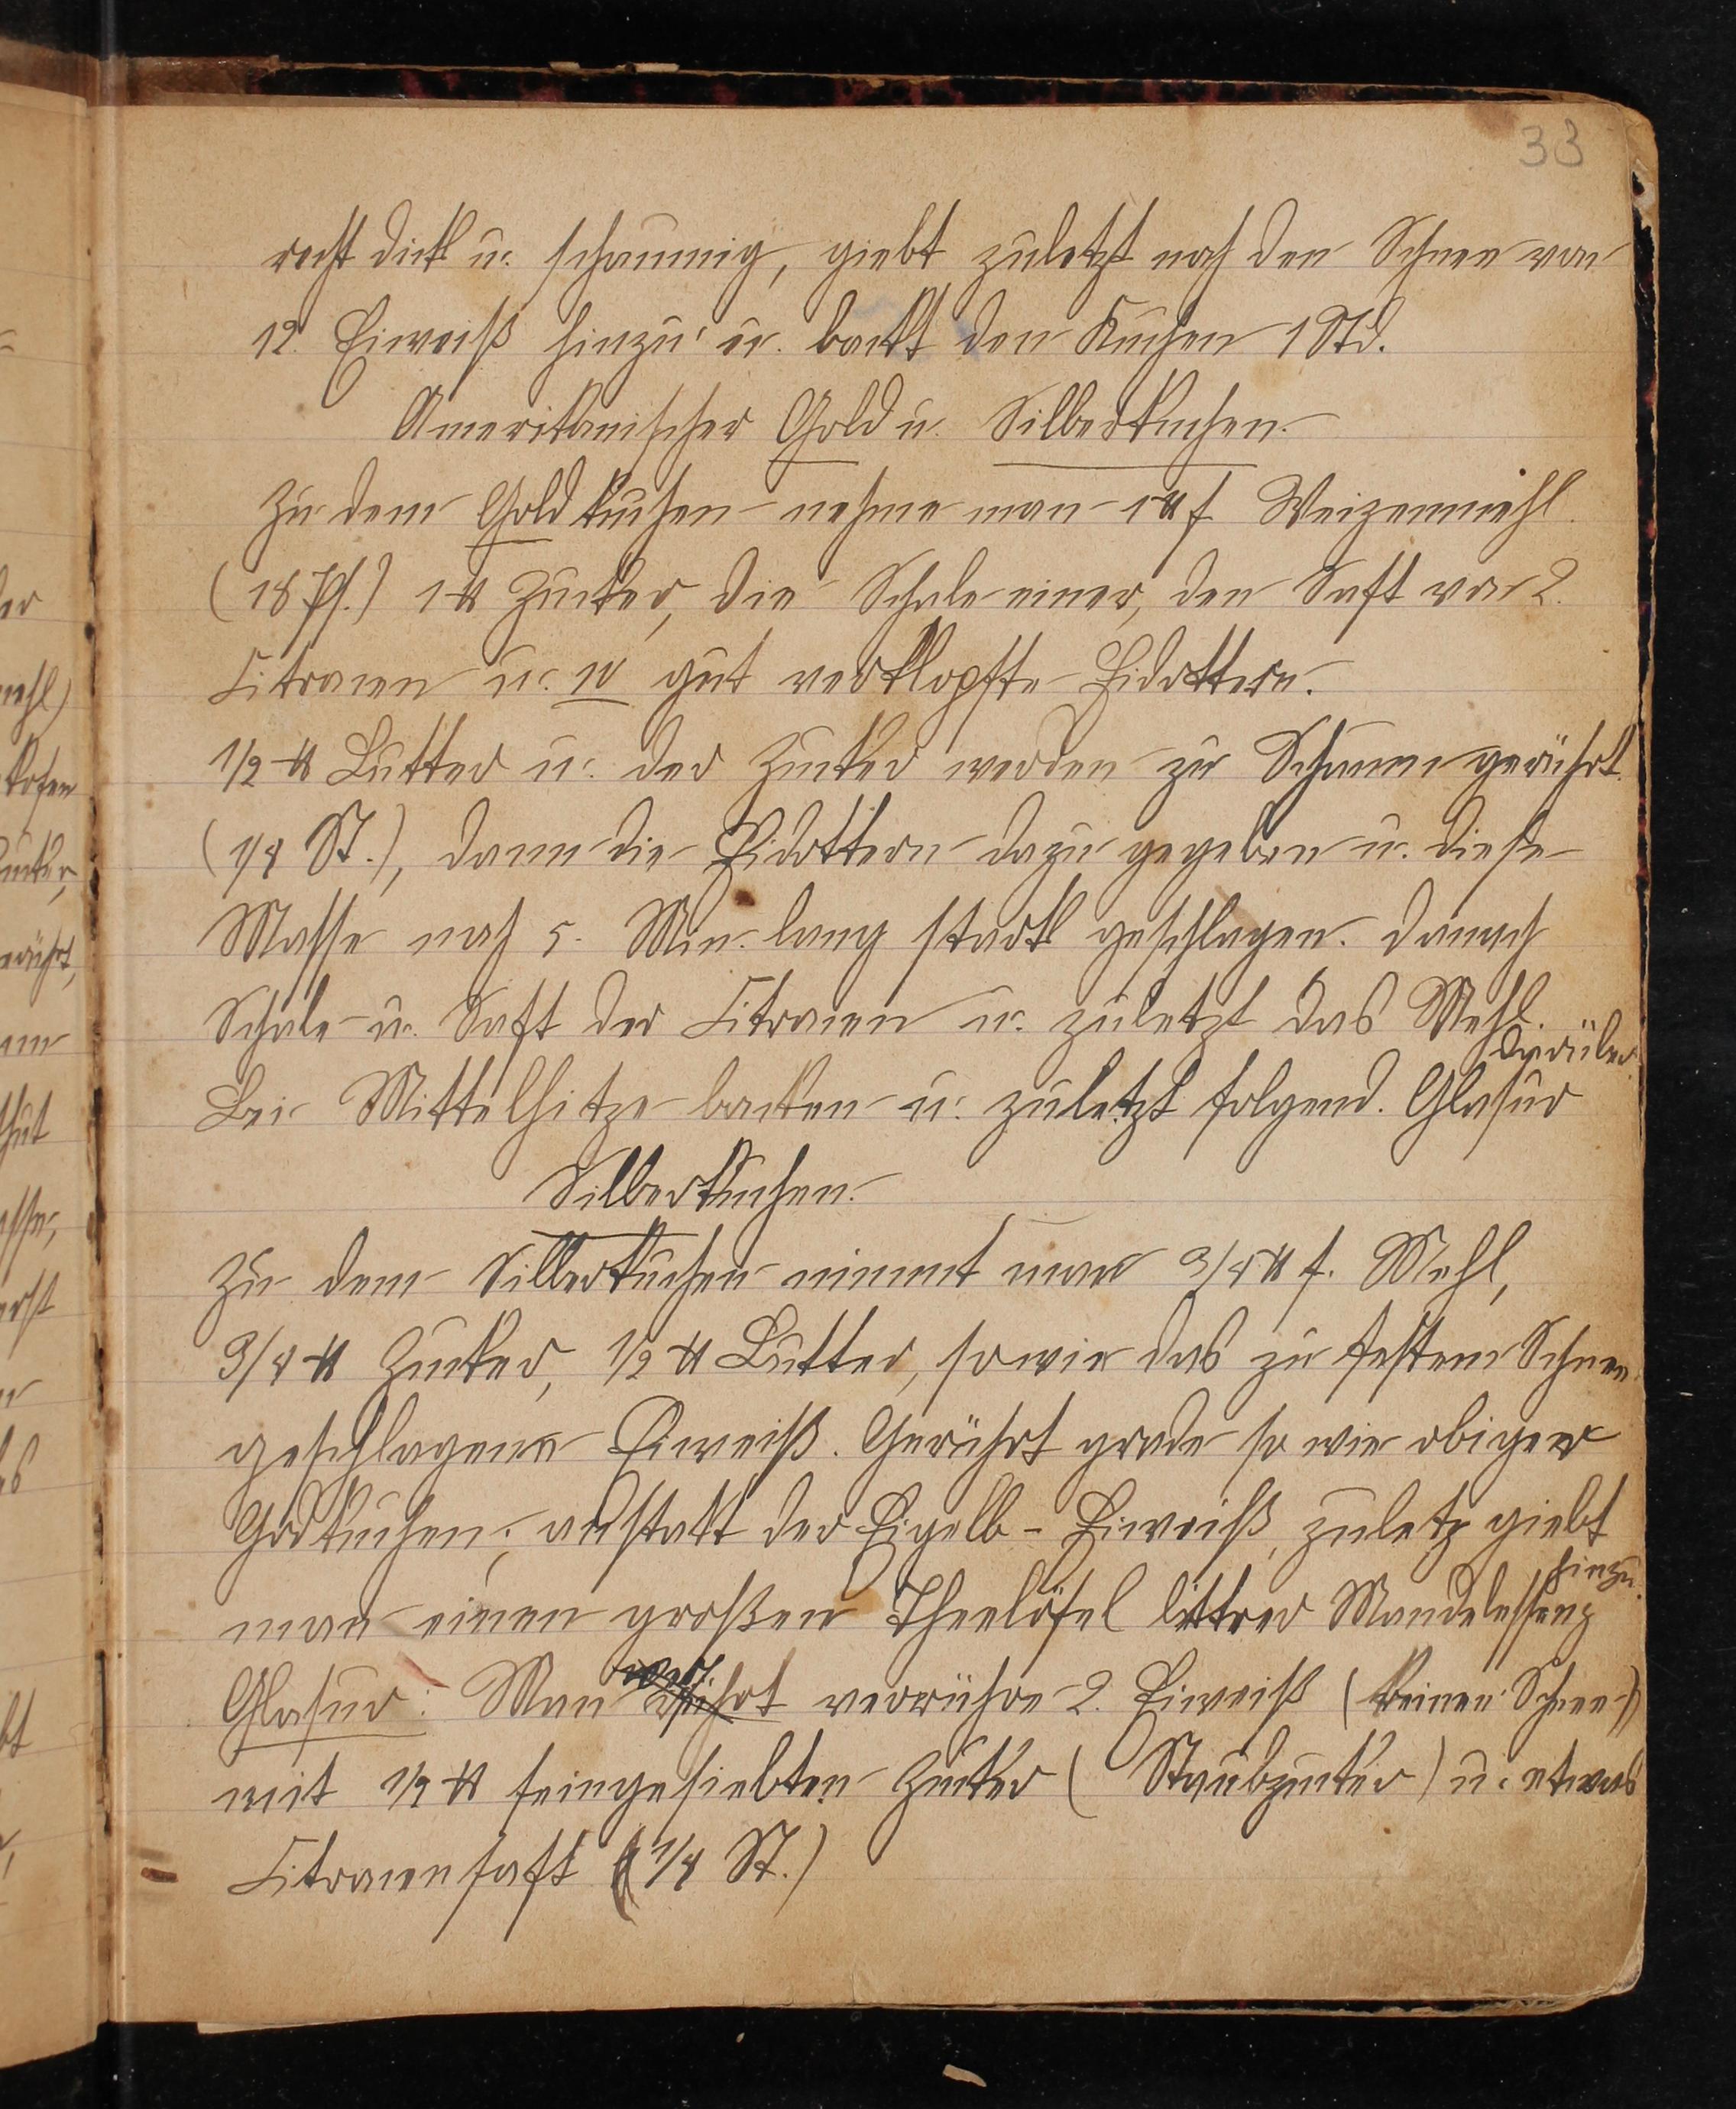 33
recht dick u. schaumig, giebt zuletzt noch den Schnee von
12. Eiweiß hinzu u. backt den Kuchen 1 Std.
Amerikanischer Gold u. Silberkuchen.
Zu dem Goldkuchen nehme man 1 ℔ f. Weizenmehl
(18 Pf.) 1 ℔ Zucker, die Schale einer, den Saft von 2.
Citronen u. 10 gut verklopfte Eidottern.
1/2 ℔ Butter u. der Zucker werden zu Schaum gerührt
(1/4 St.), dann die Eidottern dazu gegeben u. diese
Masse noch 5. Min. lang stark geschlagen. Danach
Schale u. Saft der Citronen u. zuletzt das Mehl.
Bei Mittelhitze backen u. zuletzt folgend. Glasur
darüber
Silberkuchen.
Zu dem Silberkuchen nimmt man 3/4 ℔ f. Mehl,
3/4 ℔ Zucker, 1/2 ℔ Butter, sowie das zu festem Schnee
geschlagene Eiweiß. Gerührt grade so wie obiger
Goldkuchen; anstatt der Eigelb - Eiweiß, zuletz giebt
man einen großen Theelöfel bittrer Mandelessenz
hinzu.
Glasur: Man verrühre 2. Eiweiß (keinen Schnee)
mit 1/2 ℔ feingesiebten Zucker (Staubzucker) u. etwas
Citronensaft (1/4 St.)